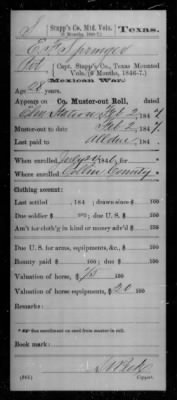 S | Stapp's Co., Mtd. Vols. | Texas.
(6 Months, 1846-7.)
E. P. Springer
Pvt, Capt. Stapp's Co., Texas Mounted
Vols. (6 Months, 1846-7.)
Mexican War.
Age 28 years.
Appears on Co. Muster-out Roll, dated
Feb 2, 1847
Muster-out to date Feb 2, 1847.
Last paid to
When enrolled July, 184
Where enrolled Collin County
Clothing account:
Last settled, 184 ; drawn since $ 100
Due soldier $ 100; due U. S. $ 100
Am't for cloth'g in kind or money adv'd $ 100
Due U. S. for arms, equipments, &c., $ 100
Bounty paid $ 100; due $ 100
Valuation of horse, $ 75 100
Valuation of horse equipments, $ 20 100
Remarks:
* See enrollment on card from muster-in roll.
Book mark:
(861) Copyist.